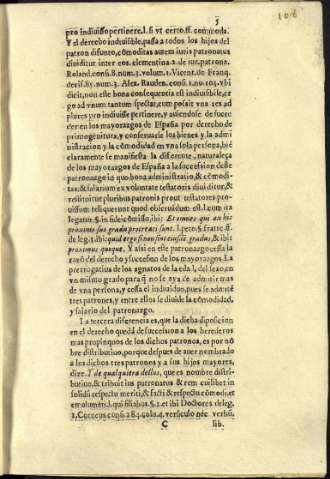 106
5
pro indiuiso pertinere, l. si vt certo. ff. commoda.
Y el derecho indiuisible, passa a todos los hijos del
patron difunto, cõmoditas autem iuris patronatus
diuiditur inter eos. clementina 2. de iur. patrona.
Roland. cons. 8. num. 3. volum. 1. Vicent. de Franq.
num. 3. Alex. Rauden. cons.
dicit, non est bona consequẽtia est indiuisibile, er
go ad vnum tantum spectat, cum possit vna res ad
plures pro indiuiso pertinere, y auiendose de suce
der en los mayorazgos de España por derecho de
primogenitura, y conseruarse los bienes y la admi
nistracion y la cõmodidad en vna sola persona, biẽ
claramente se manifiesta la diferente, naturaleza
de los mayorazgos de España a la succession deste
patronazgo in quo bona administratio, & cõmodi-
tas, & salarium ex voluntate testatoris diuiditur, &
restituitur pluribus patronis prout testatores pro
uisum reliquerunt quod obseruãdum est l. cum ita
legatur §. in fideicõmisso, ibi; Et omnes qui ex his
proximo sus gradu procreati sunt. l. peto. §. fratre ff.
de leg. 2. ibi; quid ergo si non sint eiusdẽ gradus, & ibi
proximus quisque. Y assi en este patronazgo cessa la
razõ del derecho y succession de los mayorazgos. La
prerrogatiua de los agnatos de la edad, del sexo en
vn mismo grado para q̃ no se aya de admitir mas
de vna persona, y cessa el indiuiduo, pues se admitẽ
tres patrones, y entre ellos se diuide la cõmodidad,
y salario del patronazgo.
La tercera diferencia es, que la dicha disposicion
en el derecho queda de succession a los herederos
mas propinquos de los dichos patronos, es por nõ
bre distributiuo, porque despues de auer nombrado
a los dichos tres patrones y a sus hijos mayores,
dize. Y de qualquiera dellos, que es nombre distri-
butiuo, & tribuit ius patronatus & rem cuilibet in
solidũ respectu meriti, & facti & respectu cõmodi, et
emolumẽti, l. qui filiabus. §. 1. et ibi Doctores de leg.
1. Corneus cons. 284. colu. 4. versiculo nec verbũ,
C
sib.